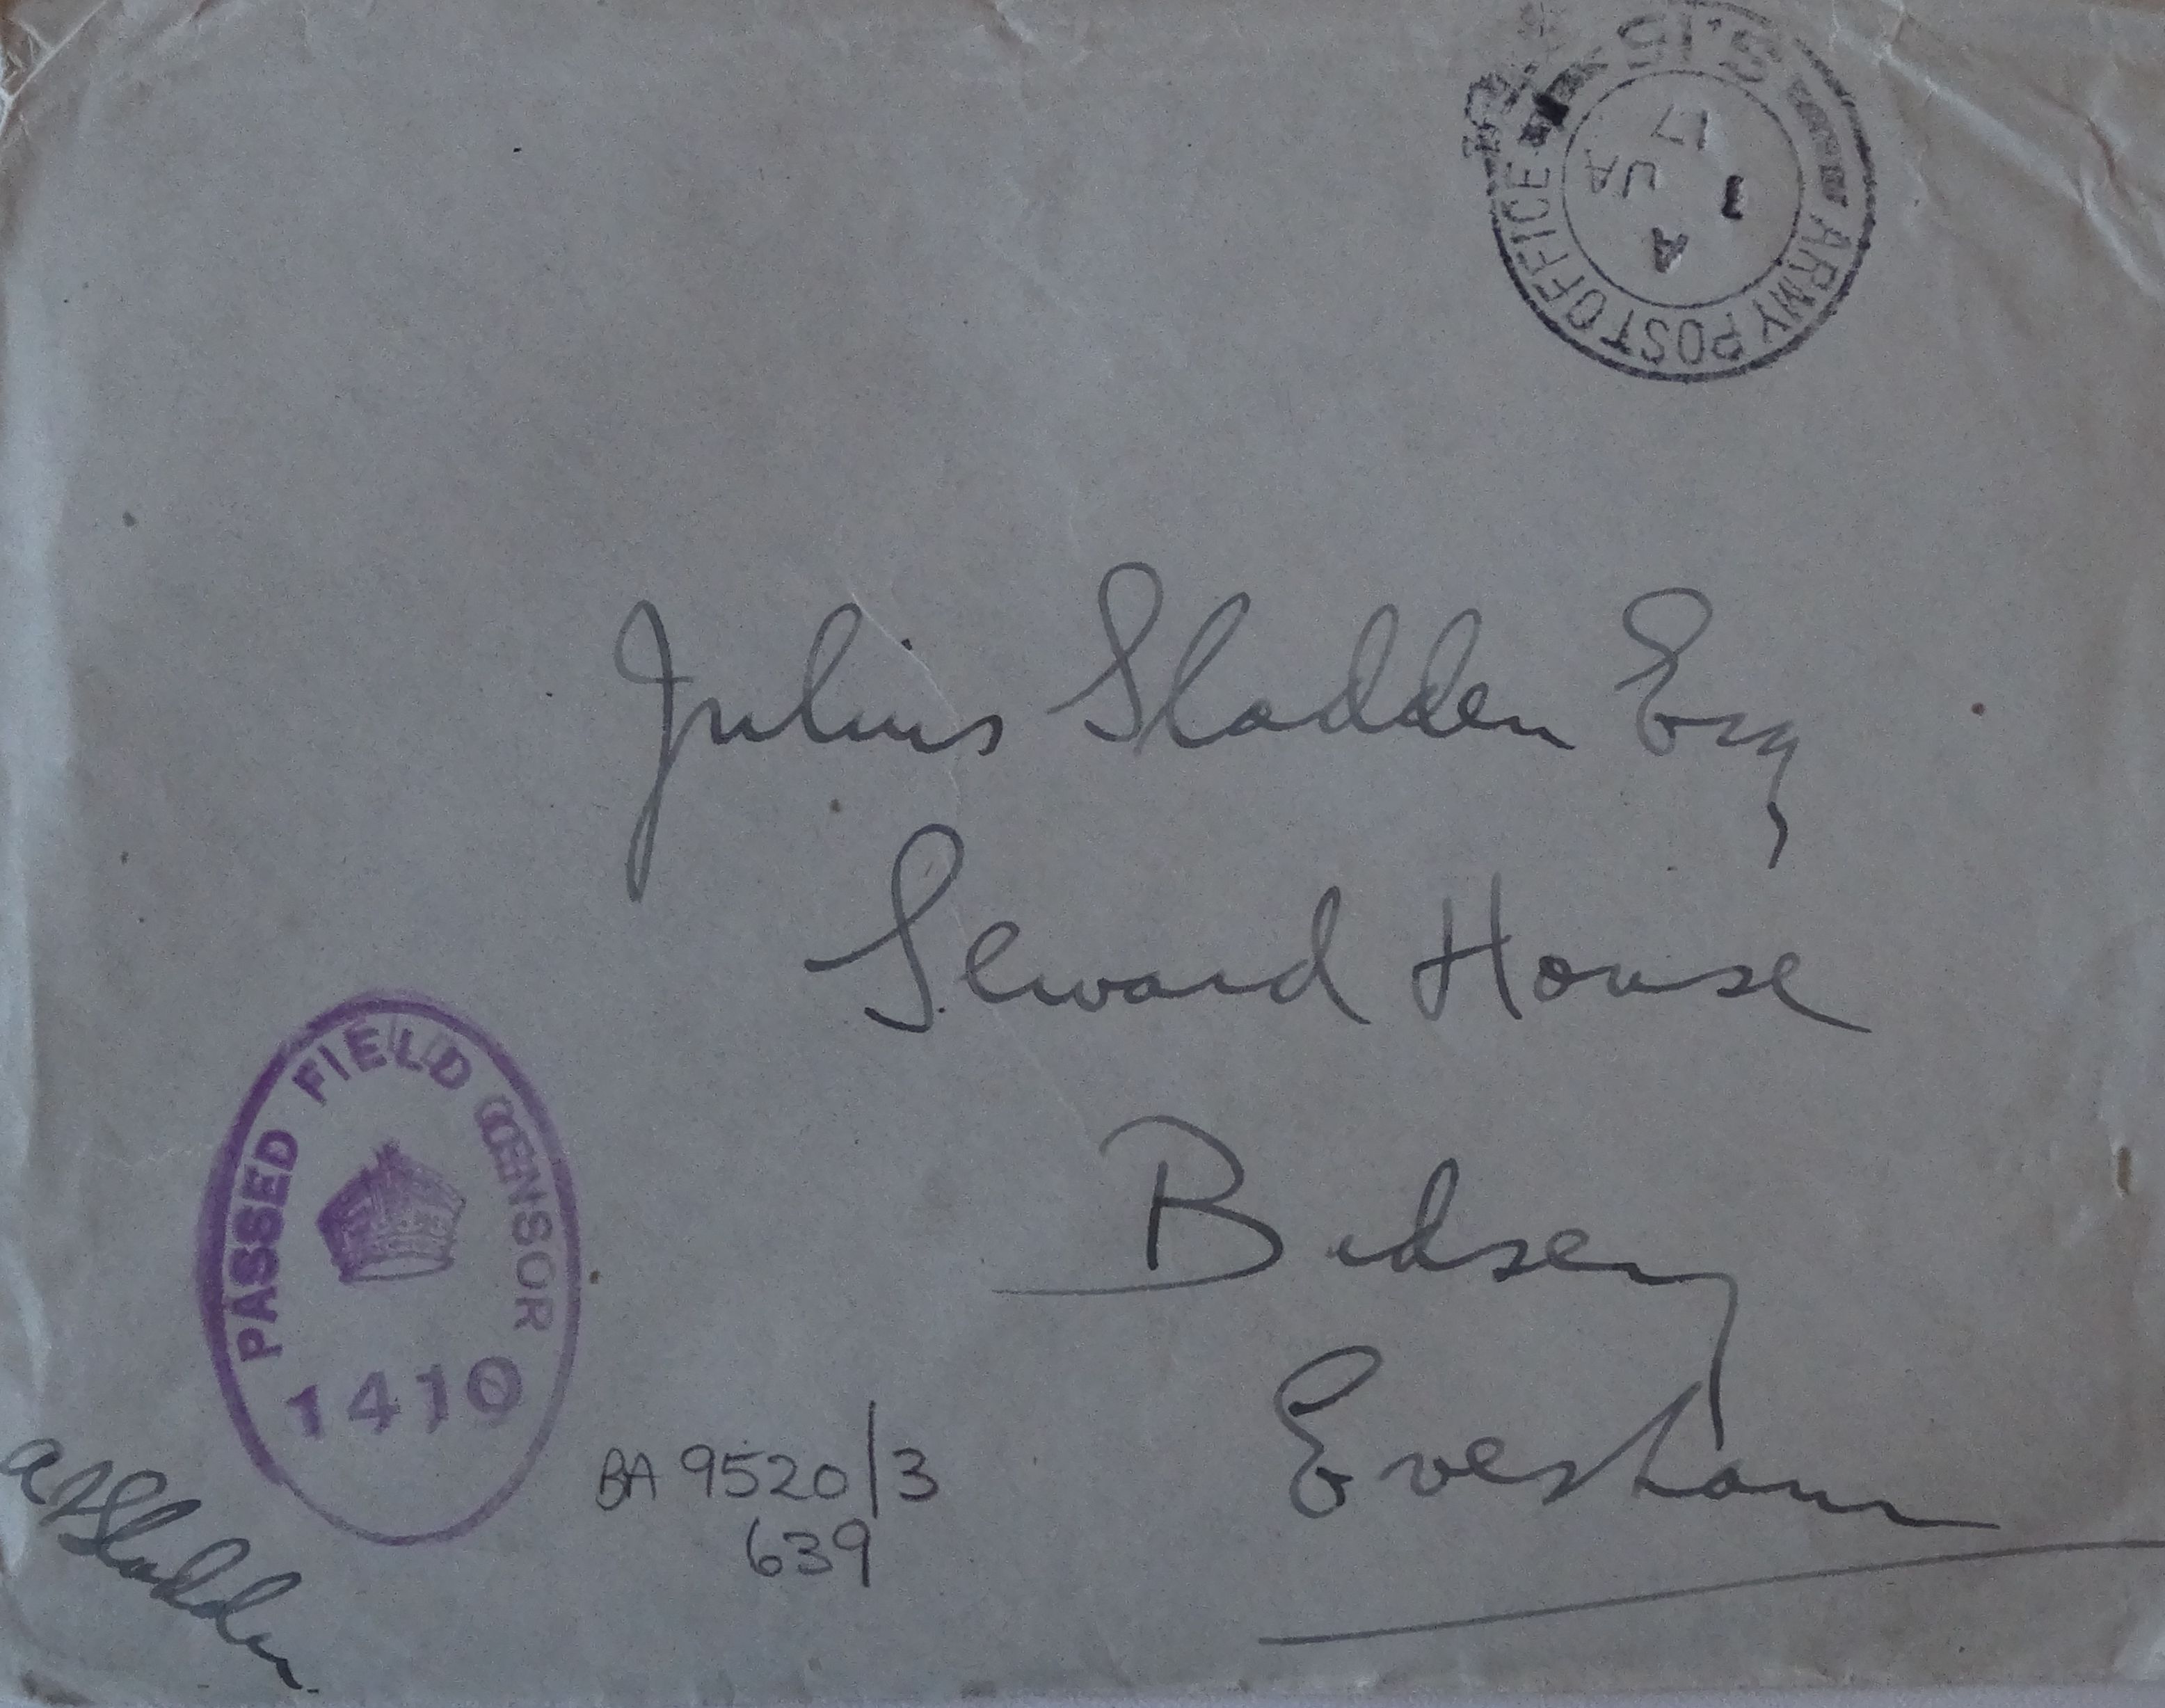 ARMY POST OFFICE
S.15
A
1
JA
17
Julius Sladden Esq
Seward House
Badsey
Evesham
PASSED FIELD CENSOR
1410
BA 9520/3
639
A F Sladden